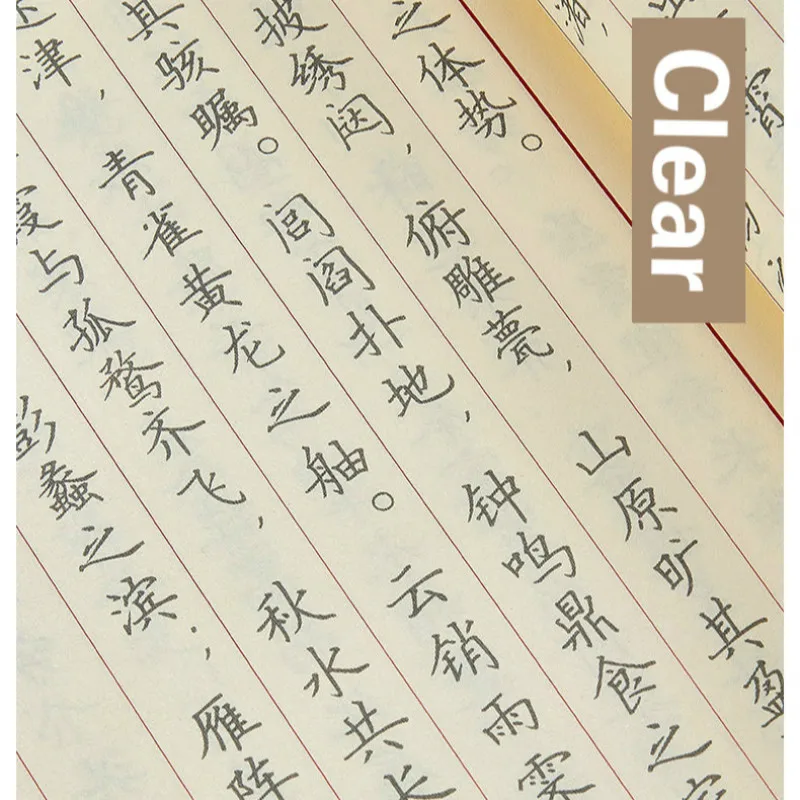 Clear
之体势。
披绣闼，俯雕甍，山原旷其盈
其骇瞩。闾阎扑地，钟鸣鼎食之家
津，青雀黄龙之舳。云销雨霁
霞与孤鹜齐飞，秋水共长
彭蠡之滨；雁阵